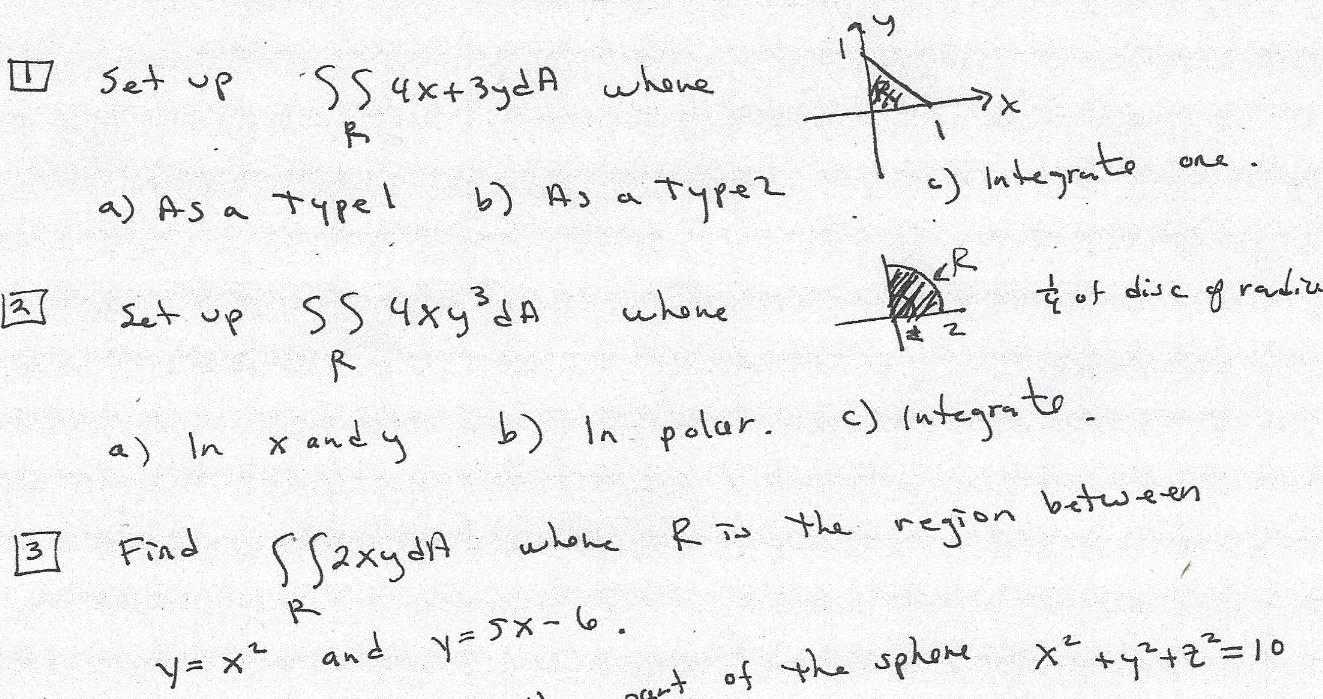 1 Set up ∫∫ 4x+3y dA where
R
y
1
R
x
1
a) As a type 1 b) As a Type 2 c) Integrate one.
2 Set up ∫∫ 4xy³ dA where
R
R
2
1/4 of disc of
a) In x and y b) In polar. c) Integrate
3 Find ∫∫ 2xy dA where R is the region between
R
y = x² and y = 5x - 6.
of the sphere x² + y² + z² = 10